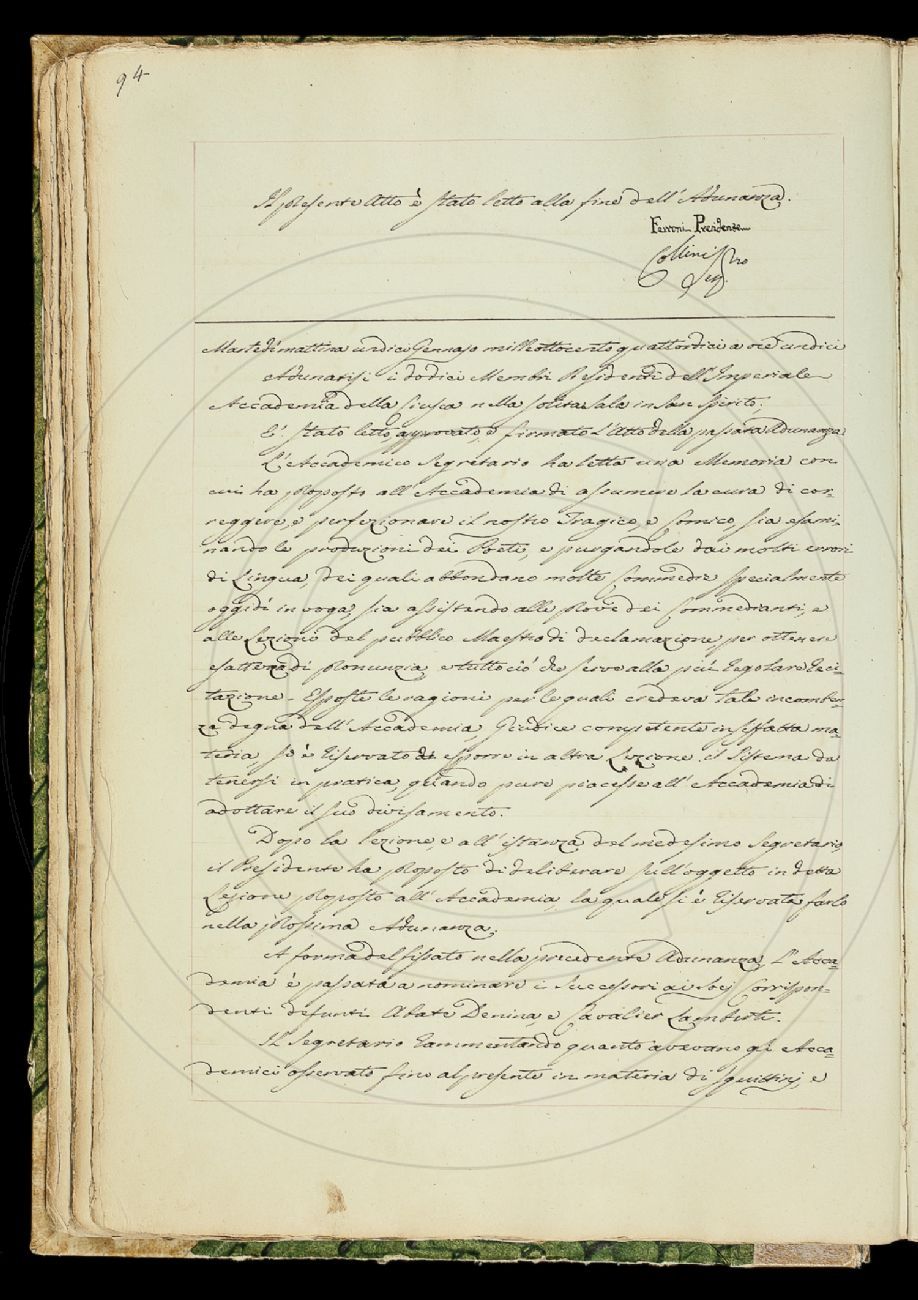 94
Il presente Atto è stato letto alla fine dell'Adunanza.
Ferroni Presidente
Collini
Seg.
Martedì mattina undici Gennajo milleottocentoquattordici a ore undici
Adunatisi i dodici Membri Residenti dell'Imperiale
Accademia della Crusca nella solita Sala in San Spirito;
E' stato letto, approvato, e firmato l'Atto della passata Adunanza.
L'Accademico Segretario ha letta una Memoria con
cui ha proposto all'Accademia di assumere la cura di cor=
reggere, e perfezionare il nostro Tragico, e Comico, sia esami=
nando le produzioni dei Poeti, e purgandole dai molti errori
di Lingua, dei quali abbondano molte Commedie specialmente
oggidì in voga, sia assistendo alle prove dei Commedianti, e
alle Lezioni del pubblico Maestro di declamazione per ottenere
esattezza di pronunzia, e tutto ciò che serve alla più regolare reci=
tazione. Esposte le ragioni per le quali credeva tale incomben=
za degna dell'Accademia, Giudice competente in siffatta ma=
teria, si è riservato di esporre in altra Lezione il Sistema da
tenersi in pratica, quando pure piacesse all'Accademia di
adottare il suo divisamento.
Dopo la lezione, e all'istanza del medesimo Segretario
il Presidente ha proposto di deliberare sull'oggetto in detta
Lezione proposto all'Accademia, la quale si è riservata farlo
nella prossima Adunanza.
A forma del fissato nella precedente Adunanza, l'Acca=
demia è passata a nominare i Successori ai Socj Corrispon=
denti defunti Abate Denina, e Cavalier Lamberti.
Il Segretario rammentando quanto avevano gli Acca=
demici osservato fino al presente in materia di squittinj, e